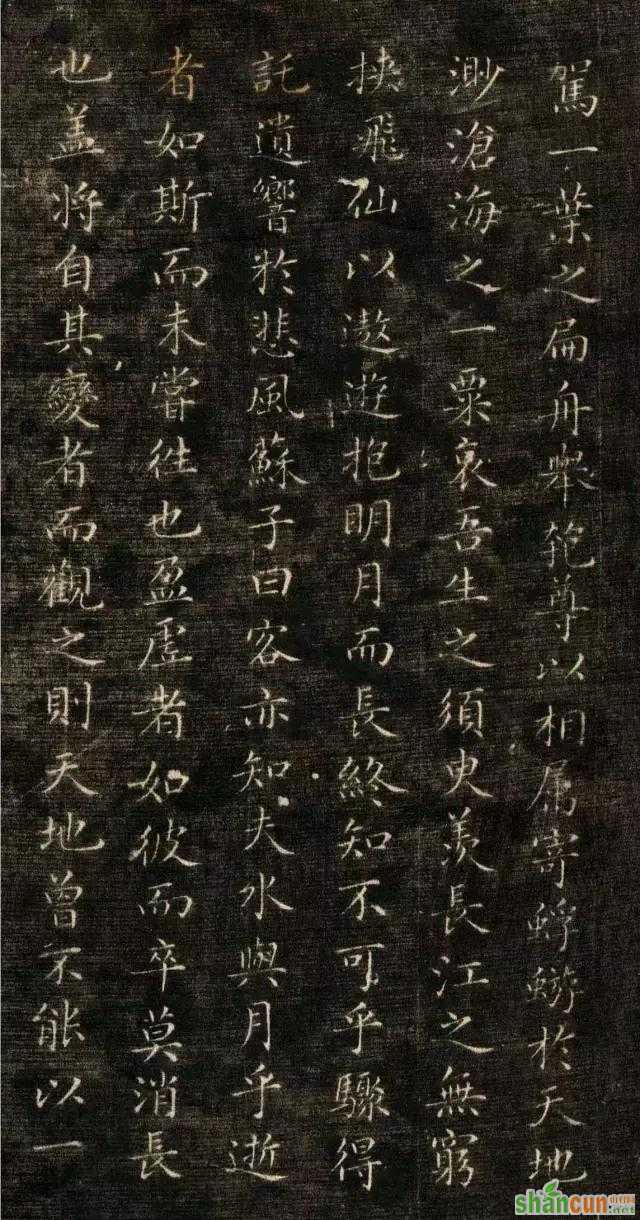 駕一葉之扁舟舉匏尊以相屬寄蜉蝣於天地
渺滄海之一粟哀吾生之須臾羨長江之無窮
挾飛仙以遨遊抱明月而長終知不可乎驟得
託遺響於悲風蘇子曰客亦知夫水與月乎逝
者如斯而未嘗往也盈虛者如彼而卒莫消長
也盖將自其變者而觀之則天地曾不能以一
shancun
.net